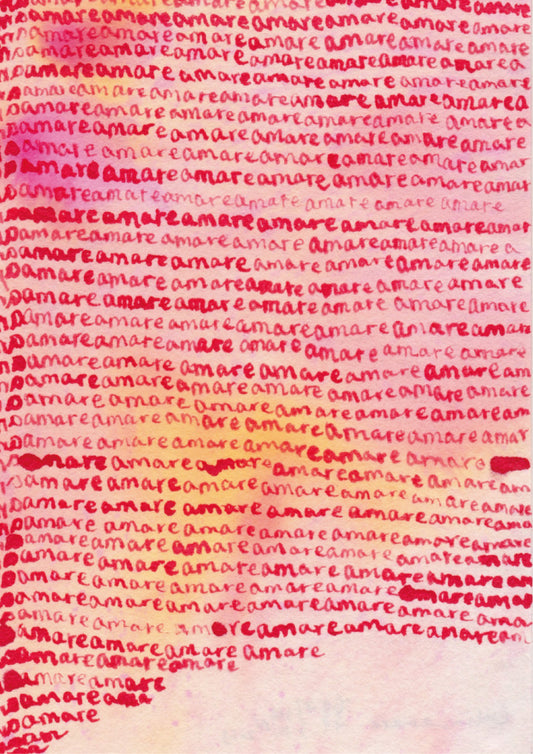 amare amare amare amare amare amare
amareamare amare amareamare amareamare
amareamare amare amareamare amareamare
amareamareamareamareamareamare a
amareamare amareamare amareamareamare
amareamareamareamareamare amareamarea
amareamareamareamareamareamare a
amareamareamareamareamareamareamare
amare amareamareamareamareamareamar
amareamareamareamareamareamareamar
amareamareamareamateamate amare amare
amareamareamareamareamareamareamar
amareamare amareamare amareamareamare a
amareamareamare amareamareamareamare
amare amareamareamareamareamareamare
amare amareamareamareamareamareamare
amareamareamareamareamareamareamar
amareamareamare amare amareamareamare
amareamareamareamareamareamaream
amareamareamareamareamareamareamare
amareamareamareamareamareamaream
amareamareamareamareamareamareamar
amare amareamareamareamareamare
amareamareamareamareamareamaream
amareamareamareamareamareamareamare
amareamareamareamareamareamareama
amareamareamareamareamareamareamare
amareamareamareamareamareamaream
amareamareamareamareamareamareama
amareamareamareamareamareamareama
amareamareamareamareamareamaream
amareamareamare amare
amareamareamare
amareamare
amareama
amare
am